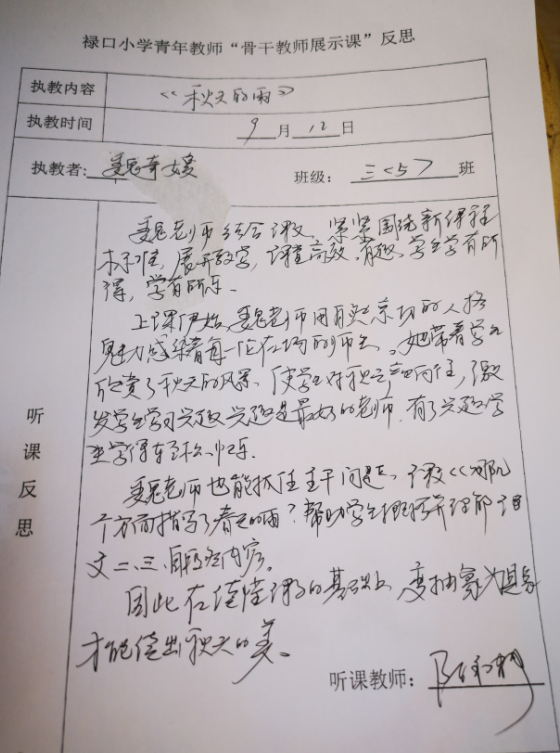 禄口小学青年教师“骨干教师展示课”反思
执教内容 《秋天的雨》
执教时间 9月12日
执教者: 魏奇媛 班级: 三<5>班
听课反思
魏老师结合课文,紧紧围绕新课程
标准,展开教学,课堂高效、有趣,学生学有所
得,学有所乐。
上课伊始,魏老师用的人格
魅力感染着每一位在场的师生。她带着学生
欣赏了秋天的风景,使学生对秋天产生向往,激
发学生学习兴趣,兴趣是最好的老师,有了兴趣学
生学得轻松、快乐。
魏老师也能抓住主干问题,课文《哪几
个方面描写了春天的雨?帮助学生理解课
文二、三、自然段内容。
因此在读懂课文的基础上,变抽象为具象
才能读出秋天的美。
听课教师: